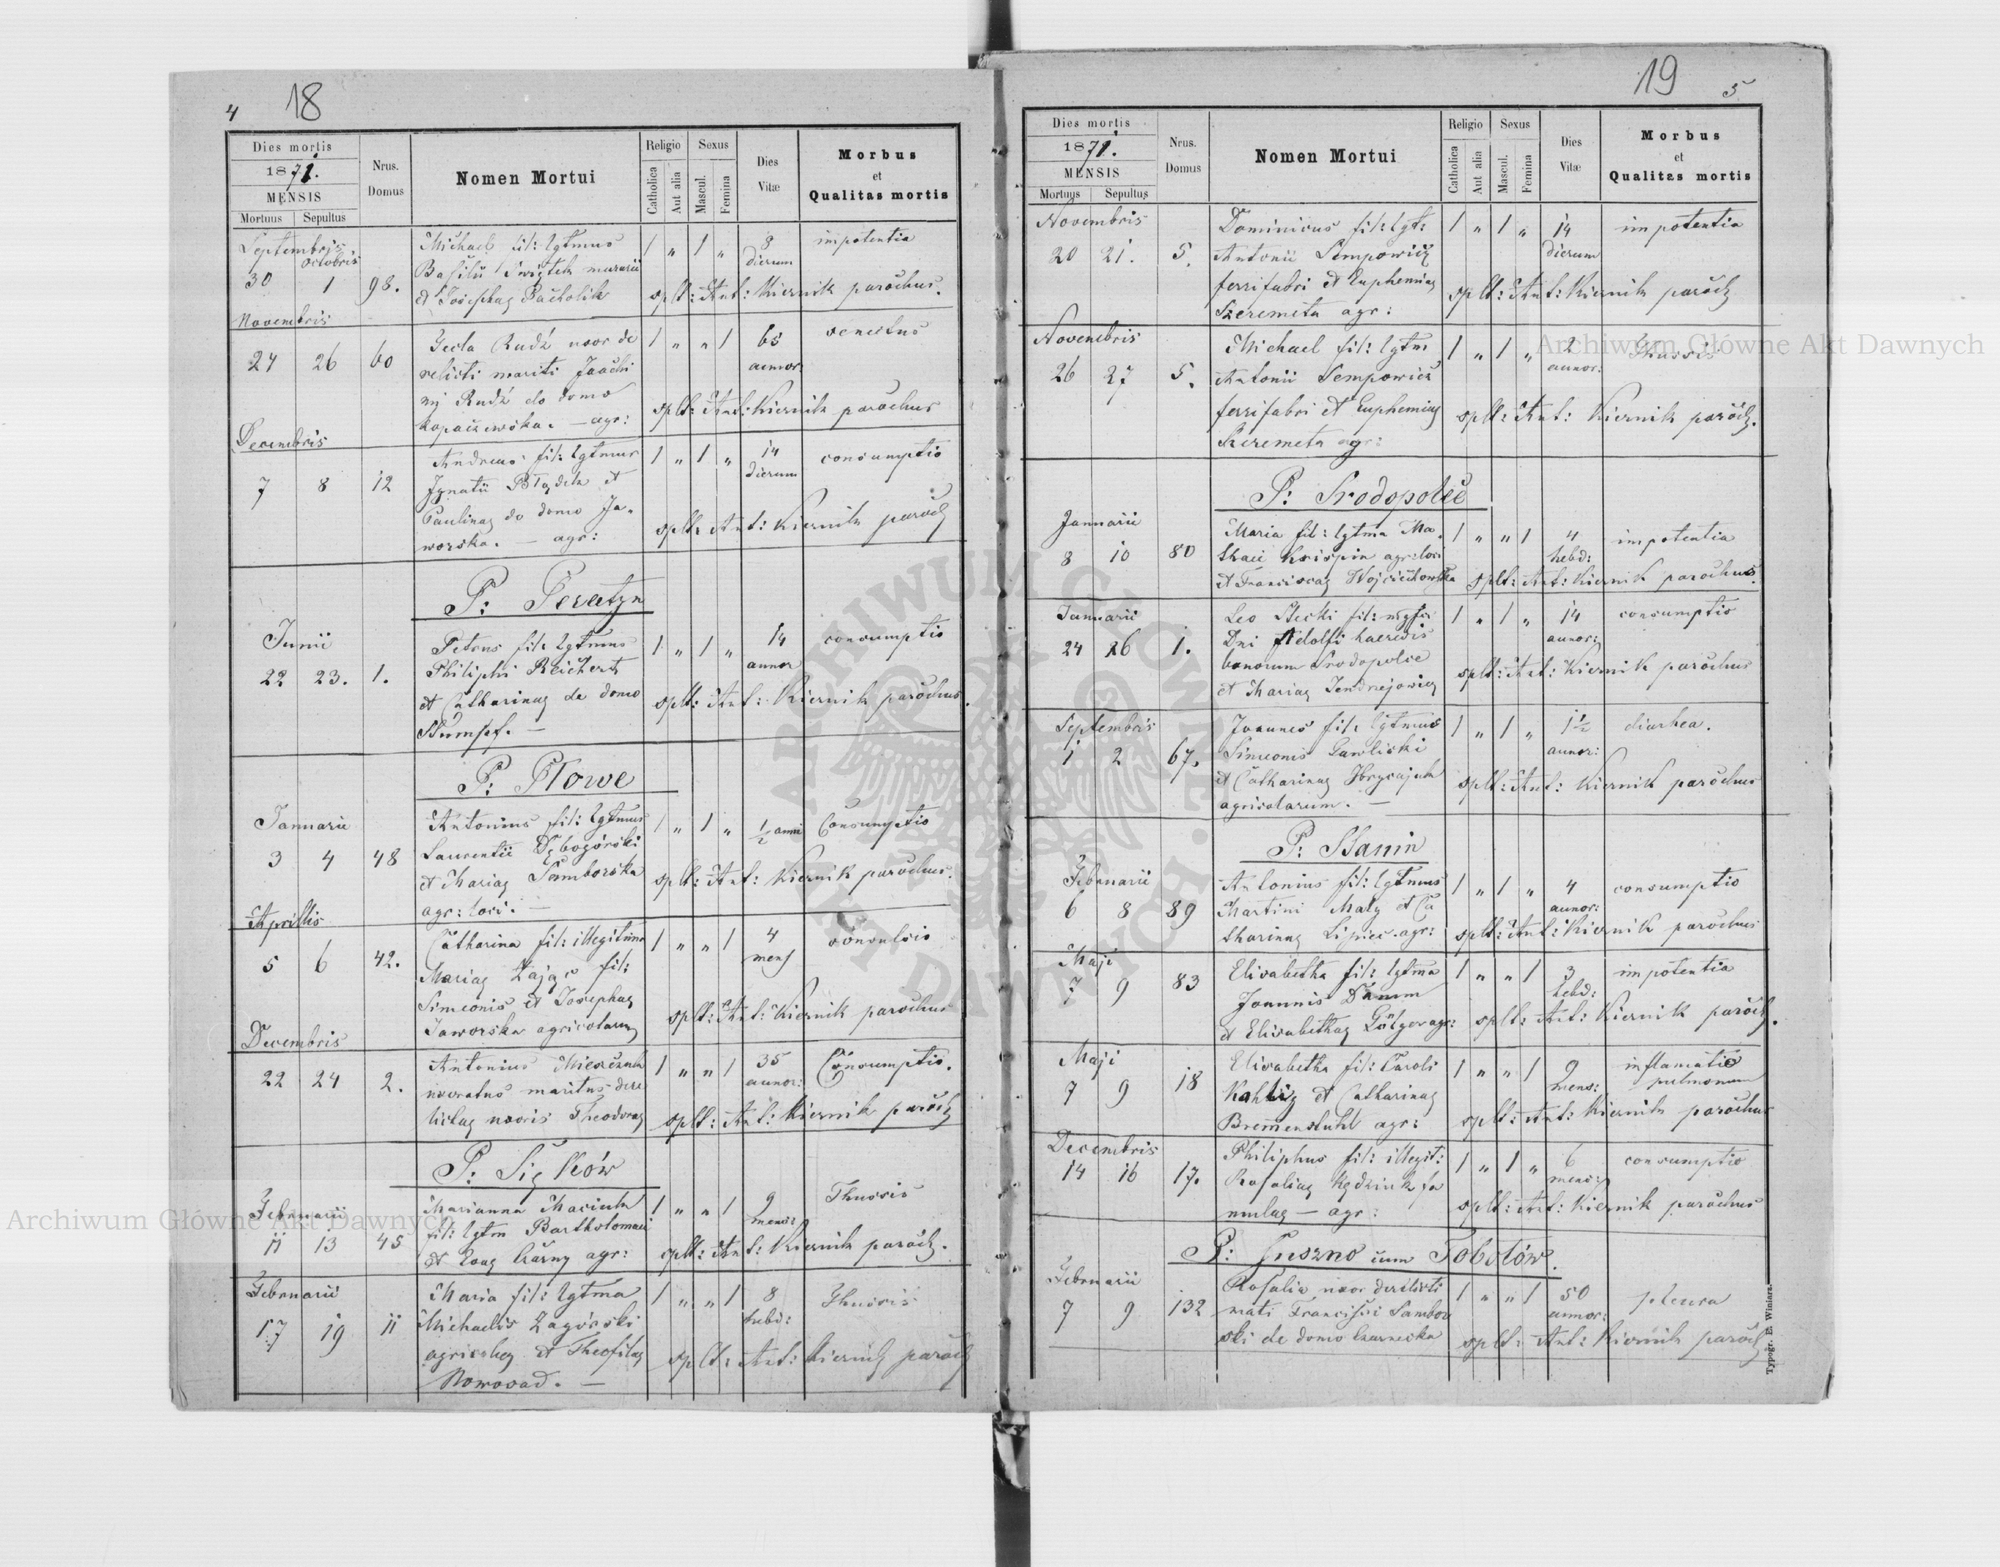 4 18
Dies mortis
1871.
MENSIS
Mortuus Sepultus
Nrus. Domus
Nomen Mortui
Religio
Catholica Aut alia
Sexus
Mascul. Femina
Dies Vitæ
Morbus
et
Qualitas mortis
Septembris octobris
30 1 98.
Michael fil: lgtmus
Basilii Swiątek murarii
et Josephae Pacholik
1 " 1 " 8 dierum impotentia
splt: Ant: Kiernik parochus.
Novembris
24 26 60
Tecla Rudź uxor de
relicti mariti Joachi
mj Rudź de domo
Kopaczewska. – agr:
1 " " 1 65 annor: senectus
splt: Ant: Kiernik parochus
Decembris
7 8 12
Andreas fil: lgtmus
Ignatii Błądek et
Paulinae de domo Ja-
worska. – agr:
1 " 1 " 14 dierum consumptio
splt: Ant: Kiernik paroch
P: Peratyn
Junii
22 23. 1.
Petrus fil: lgtmus
Philiphi Reichert
et Catharinae de domo
Stumpf. –
1 " 1 " 14 annor consumptio
splt: Ant: Kiernik parochus.
P: Płowe
Januarii
3 4 48
Antonius fil: lgtmus
Laurentii Dębogórski
et Mariae Samborska
agr: lori: –
1 " 1 " 1/2 anni Consumptio
splt: Ant: Kiernik parochus.
Aprillis
5 6 42.
Catharina fil: illegitima
Mariae Zając fil:
Simeonis et Josephae
Jaworska agricolarum
1 " " 1 4 mens consulsio
splt: Ant: Kiernik parochus
Decembris
22 24 2.
Antonius
uxoratus maritus dere
lictae uxoris Theodorae
1 " " 1 35 annor: Consumptio.
splt: Ant: Kiernik paroch
P: Sięków
Februarii
11 13 45
Marianna Maciuk
fil: lgtm Bartholomaei
et Evae Czarny agr:
1 " " 1 9 mens: Thussis
splt: Ant: Kiernik paroch.
Februarii
17 19 11
Maria fil: lgtma
Michaelis Zagórski
agricolae et Theofilae
Nowosad. –
1 " " 1 8 hebd: Thussis
splt: Ant: Kiernik paroch
19 5
Dies mortis
1871.
MENSIS
Mortuus Sepultus
Nrus. Domus
Nomen Mortui
Religio
Catholica Aut alia
Sexus
Mascul. Femina
Dies Vitæ
Morbus
et
Qualitas mortis
Novembris
20 21. 5.
Dominicus fil: lgt:
Antonii Sempowicz
ferrifabri et Euphemiae
Szeremeta agr:
1 " 1 " 14 dierum impotentia
splt: Ant: Kiernik paroch
Novembris
26 27 5.
Michael fil: lgtm
Antonii Sempowicz
ferrifabri et Euphemiae
Szeremeta agr:
1 " 1 " 2 annor: Thussis
splt: Ant: Kiernik paroch.
P: Srodopolce
Januarii
8 10 80
Maria fil: lgtma Ma-
thaei Krispin agr: lori
et Franciscae Wojciechowska
1 " " 1 4 hebd: impotentia
splt: Ant: Kiernik parochus.
Januarii
24 26 1.
Leo Stecki fil: mgfci
Dni Adolfi haeredis
bonorum Srodopolce
et Mariae Jendrzejowicz
1 " 1 " 14 annor: consumptio
splt: Ant: Kiernik parochus
Septembris
1 2 67.
Joannes fil: lgtmus
Simeonis Gawliski
et Catharinae Hrycajuk
agricolarum. –
1 " 1 " 1 1/2 annor: diarhea.
splt: Ant: Kiernik parochus
P: Stanin
Februarii
6 8 89
Antonius fil: lgtmus
Martini Mały et Ca
tharinae Lipiec agr:
1 " 1 " 4 annor: consumptio
splt: Ant: Kiernik parochus
Maji
7 9 83
Elisabetha fil: lgtma
Joannis Damm
et Elisabethae agr:
1 " " 1 3 hebd: impotentia
splt: Ant: Kiernik paroch.
Maji
7 9 18
Elisabetha fil: Caroli
et Catharinae
Bremenstuhl agr:
1 " " 1 9 mens: inflamatio pulmonum
splt: Ant: Kiernik parochus
Decembris
14 16 17.
Philiphus fil: illegit:
Rosaliae Kędziuk fa
mulae – agr:
1 " 1 " 6 mensy consumptio
splt: Ant: Kiernik parochus
P: Juszno cum Tobołów.
Februarii
7 9 132
Rosalia uxor derelicti
mati Francisci Sambor
ski de domo Czarnecka
1 " " 1 50 annor: pleura
splt: Ant: Kiernik paroch.
Typogr. E. Winiarz.
Archiwum Główne Akt Dawnych
Archiwum Główne Akt Dawnych
ARCHIWUM GŁÓWNE AKT DAWNYCH